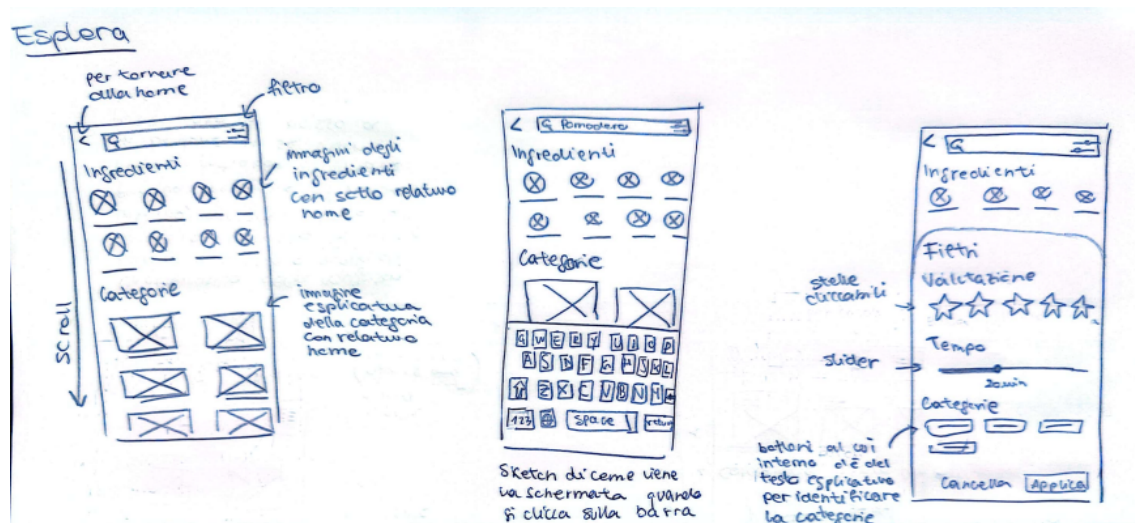 Esplora
per tornare
alla home
filtro
Ingredienti
immagini degli
ingredienti
con sotto relativo
nome
Categorie
immagine
esplicativa
della categoria
con relativo
nome
Scroll
Pomodoro
Ingredienti
Categorie
Q W E R Y U I O P
A S D F G H J K L
Z X C V B N M
123
space
return
Sketch di come viene
la schermata quando
si clicca sulla barra
Ingredienti
Filtri
Valutazione
stelle
cliccabili
Tempo
slider
20min
Categorie
bottoni al cui
interno c'è del
testo esplicativo
per identificare
la categorie
Cancella Applica